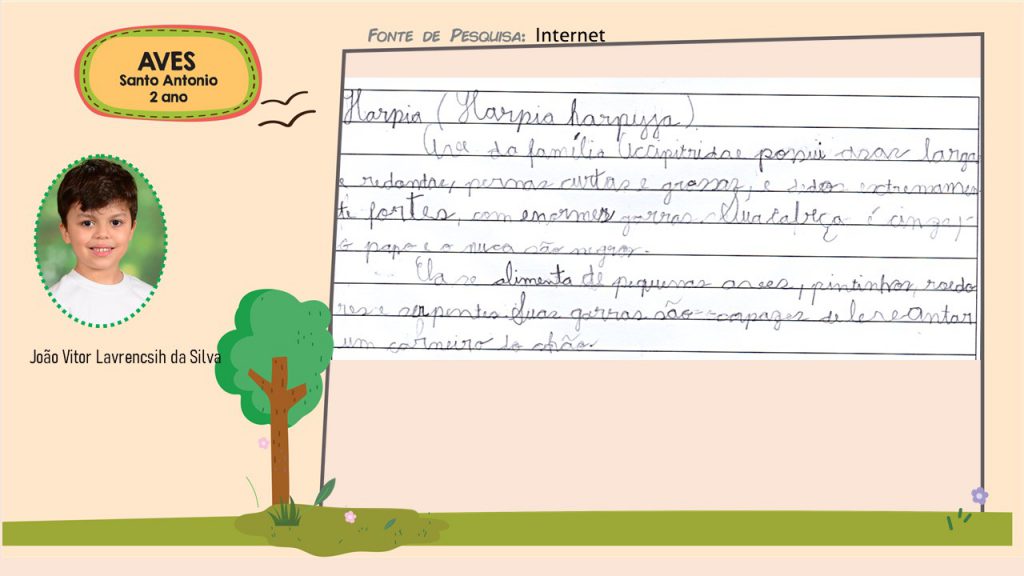 FONTE DE PESQUISA: Internet
AVES
Santo Antonio
2 ano
Harpia (Harpia harpyja)
Ave da família Accipitridae possui asas larga
e redondas, pernas curtas e grossas, e dedos extremamen
te fortes, com enormes garras. Sua cabeça é cinza,
o papo e a nuca são negros.
Ela se alimenta de pequenas aves, pintinhos, roedo
res e serpentes. Suas garras são capazes de levantar
um carneiro do chão.
João Vitor Lavrencsih da Silva